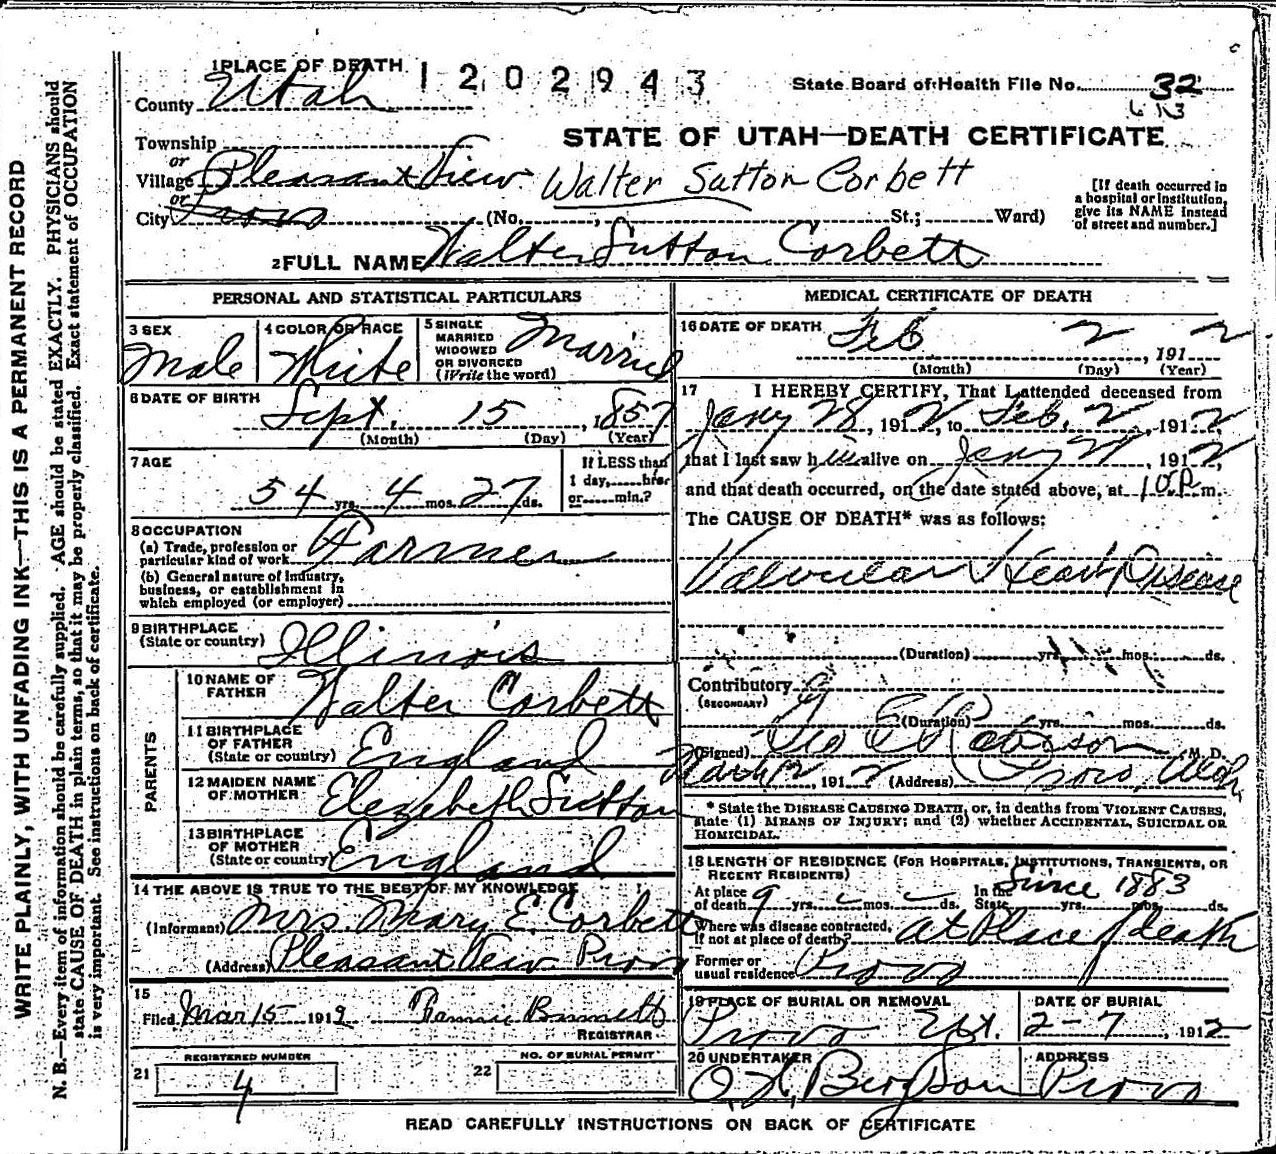 1 PLACE OF DEATH
1202943
State Board of Health File No. 32
County Utah
613
STATE OF UTAH—DEATH CERTIFICATE
Township
or
Village Pleasant View
Walter Sutton Corbett
or
City Provo (No. , St.; Ward)
[If death occurred in
a hospital or institution,
give its NAME instead
of street and number.]
2 FULL NAME Walter Sutton Corbett
PERSONAL AND STATISTICAL PARTICULARS
3 SEX
Male
4 COLOR OR RACE
White
5 SINGLE
MARRIED
WIDOWED
OR DIVORCED
(Write the word)
Married
6 DATE OF BIRTH
Sept. 15, 1857
(Month) (Day) (Year)
7 AGE
54 yrs. 4 mos. 27 ds.
If LESS than
1 day, hrs
or min.?
8 OCCUPATION
(a) Trade, profession or
particular kind of work Farmer
(b) General nature of industry,
business, or establishment in
which employed (or employer)
9 BIRTHPLACE
(State or country) Illinois
PARENTS
10 NAME OF
FATHER Walter Corbett
11 BIRTHPLACE
OF FATHER
(State or country) England
12 MAIDEN NAME
OF MOTHER Elezebeth Sutton
13 BIRTHPLACE
OF MOTHER
(State or country) England
14 THE ABOVE IS TRUE TO THE BEST OF MY KNOWLEDGE
(Informant) Mrs. Mary E. Corbett
(Address) Pleasant View Provo
15
Filed Mar 15 1912
REGISTRAR
21 REGISTERED NUMBER
4
22 NO. OF BURIAL PERMIT
MEDICAL CERTIFICATE OF DEATH
16 DATE OF DEATH Feb 2, 1912
(Month) (Day) (Year)
17 I HEREBY CERTIFY, That I attended deceased from
Jany 28, 1912, to Feb. 2, 1912
that I last saw him alive on Jany, 1912,
and that death occurred, on the date stated above, at 10 P. m.
The CAUSE OF DEATH* was as follows:
Valvular Heart Disease
(Duration) yrs. mos. ds.
Contributory
(SECONDARY)
(Duration) yrs. mos. ds.
(Signed) Geo E Robison M. D.
March 12, 1912 (Address) Provo, Utah
* State the DISEASE CAUSING DEATH, or, in deaths from VIOLENT CAUSES,
state (1) MEANS OF INJURY; and (2) whether ACCIDENTAL, SUICIDAL OR
HOMICIDAL.
18 LENGTH OF RESIDENCE (FOR HOSPITALS, INSTITUTIONS, TRANSIENTS, OR
RECENT RESIDENTS)
At place
of death 9 yrs. mos. ds.
In the
State Since 1883 yrs. mos. ds.
Where was disease contracted,
if not at place of death? at Place of death
Former or
usual residence Provo
19 PLACE OF BURIAL OR REMOVAL
Provo Ut.
DATE OF BURIAL
2-7, 1912
20 UNDERTAKER
ADDRESS
Provo
READ CAREFULLY INSTRUCTIONS ON BACK OF CERTIFICATE
WRITE PLAINLY, WITH UNFADING INK—THIS IS A PERMANENT RECORD
N. B.—Every item of information should be carefully supplied. AGE should be stated EXACTLY. PHYSICIANS should
state CAUSE OF DEATH in plain terms, so that it may be properly classified. Exact statement of OCCUPATION
is very important. See instructions on back of certificate.